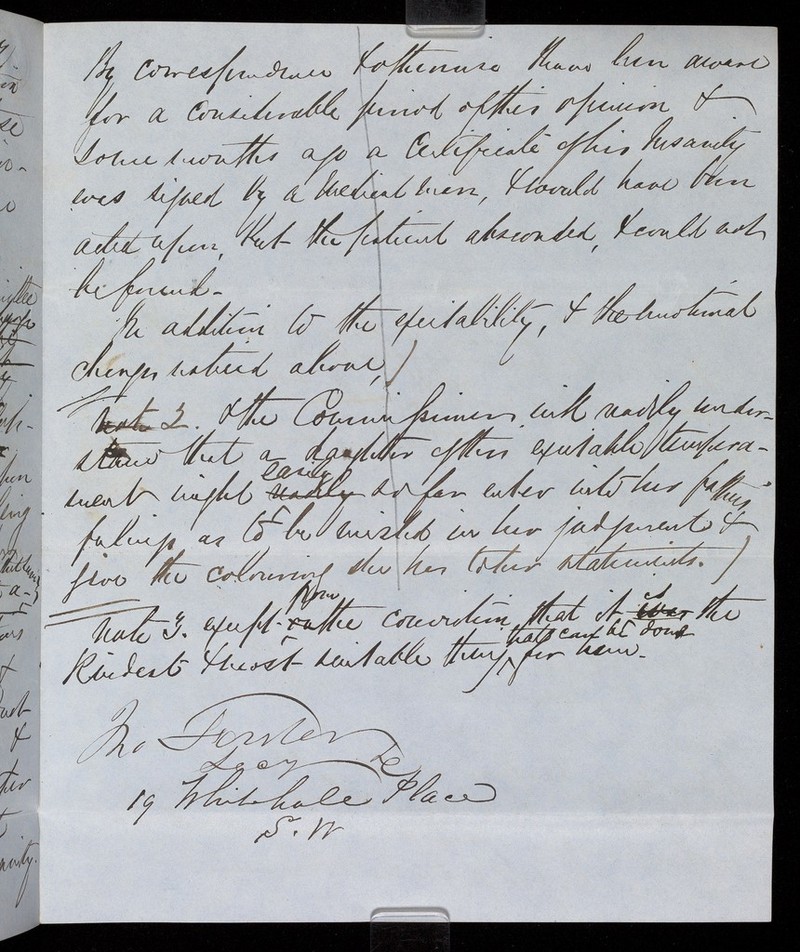 By correspondence & otherwise I have been aware
for a considerable period of this opinion &
some months ago a Certificate of his Insanity
was signed by a Medical man, & would have been
acted upon, but the patient absconded, & could not
be found -
In addition to the excitability, & the emotional
changes noticed above,)
Note 2. & the Commissioners will readily under-
stand that a daughter of this excitable tempera-
ment might easily readily so far enter into her father's
feelings as to be misled in her judgment &
give the colouring she has to her statements.)
Note 3. except from the conviction that it is was the
kindest & most suitable thing that can be done for him.
Jno Forster
Secy
19 Whitehall Place
S. W